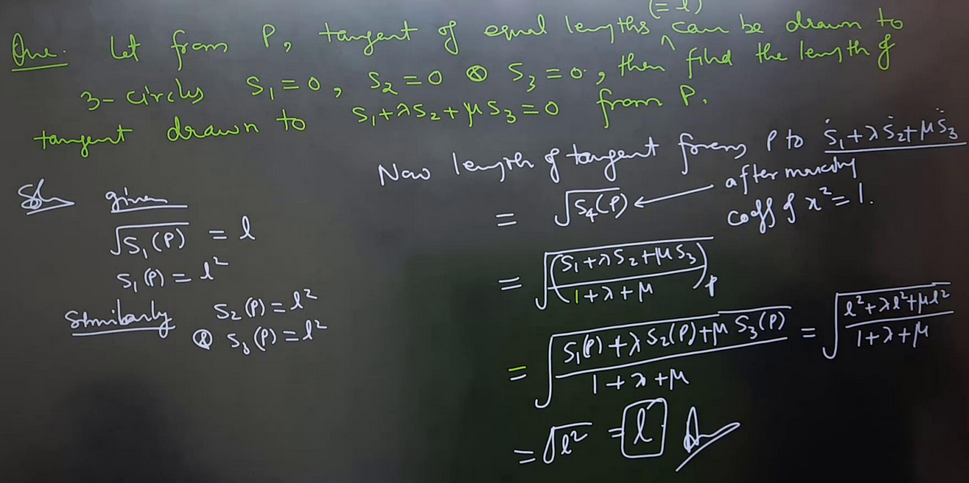 Que. Let from P, tangent of equal lengths (= l) can be drawn to
3-circles S₁ = 0, S₂ = 0 & S₃ = 0, then find the length of
tangent drawn to S₁+λS₂+μS₃=0 from P.
Sol given
√S₁(P) = l
S₁(P) = l²
Similarly S₂(P) = l²
& S₃(P) = l²
Now length of tangent from P to S₁+λS₂+μS₃
= √S₄(P) ← after making
coeff of x² = 1.
= √((S₁+λS₂+μS₃)/(1+λ+μ))ₚ
= √((S₁(P)+λS₂(P)+μS₃(P))/(1+λ+μ)) = √((l²+λl²+μl²)/(1+λ+μ))
= √l² = l Ans